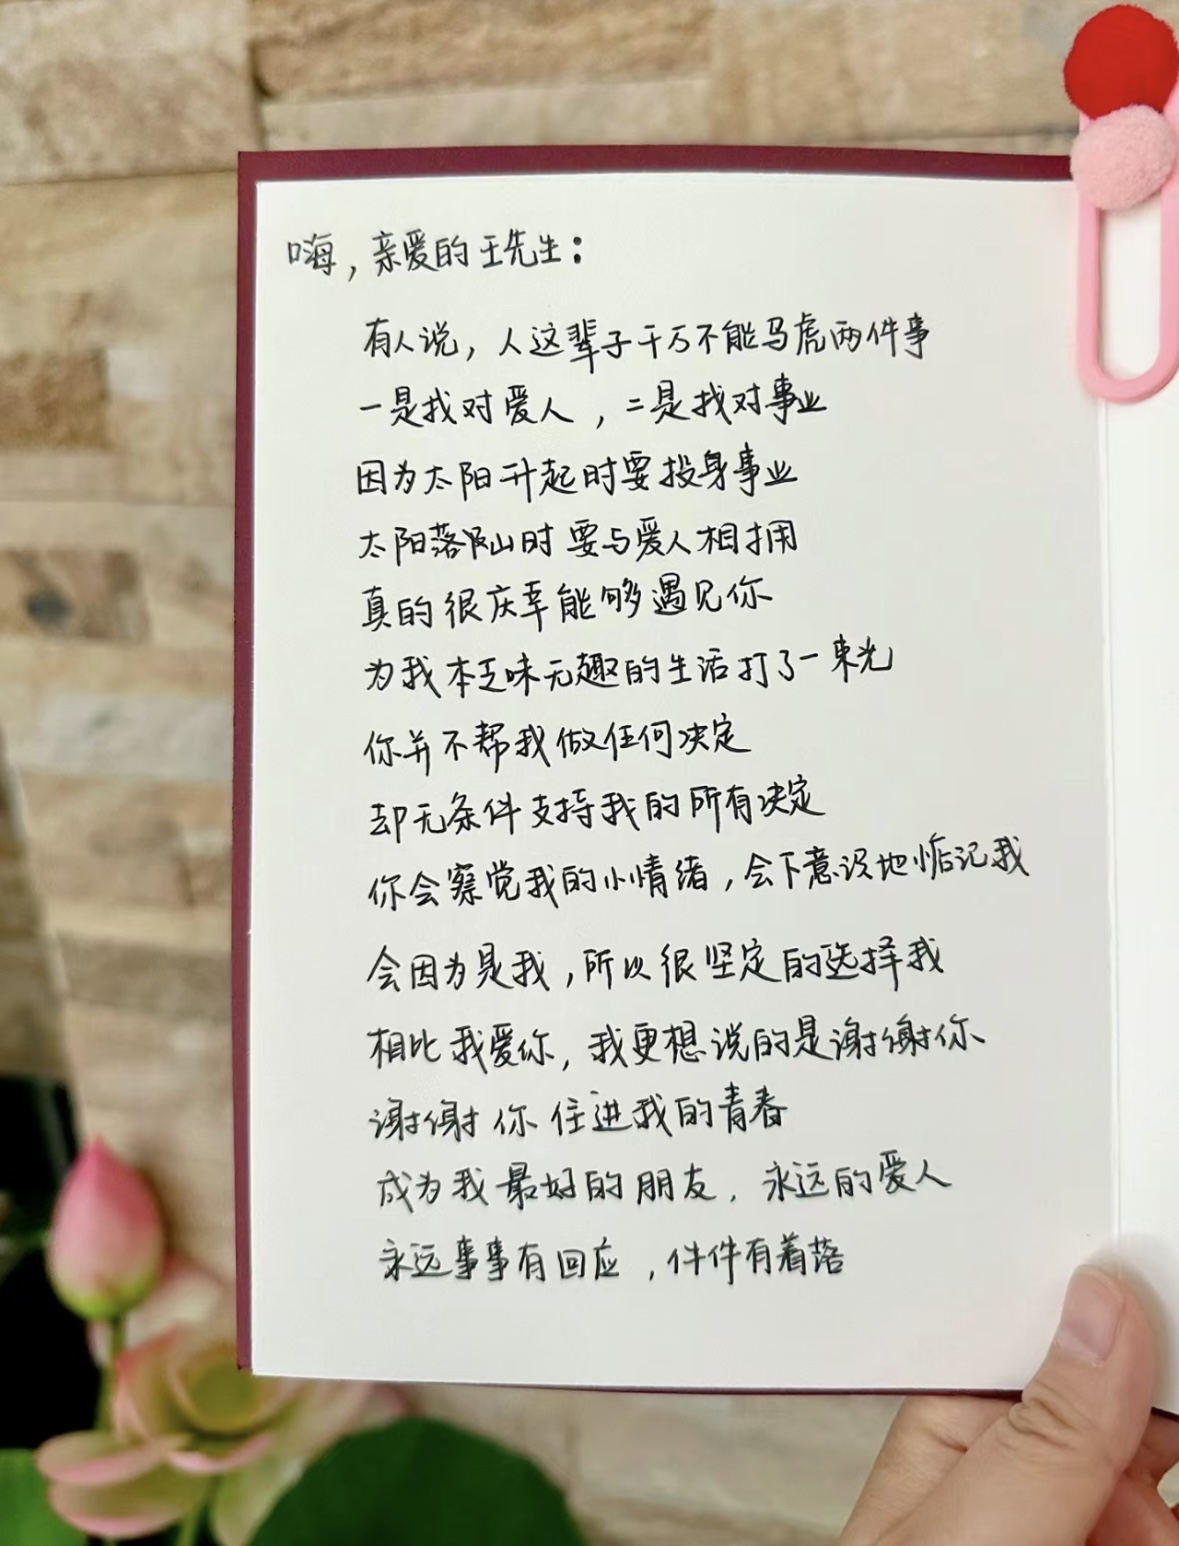 嗨，亲爱的王先生：
有人说，人这辈子千万不能马虎两件事
一是找对爱人，二是找对事业
因为太阳升起时要投身事业
太阳落山时要与爱人相拥
真的很庆幸能够遇见你
为我本乏味无趣的生活打了一束光
你并不帮我做任何决定
却无条件支持我的所有决定
你会察觉我的小情绪，会下意识地惦记我
会因为是我，所以很坚定的选择我
相比我爱你，我更想说的是谢谢你
谢谢你住进我的青春
成为我最好的朋友，永远的爱人
永远事事有回应，件件有着落